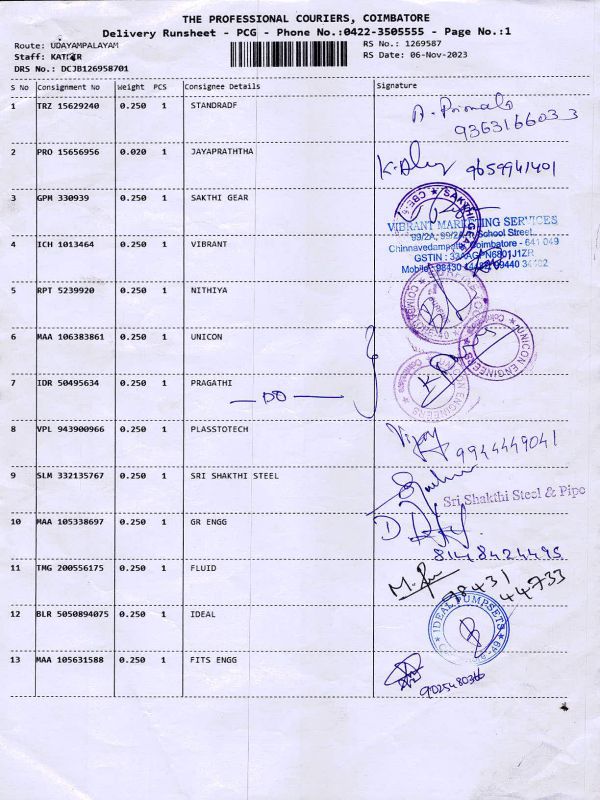 THE PROFESSIONAL COURIERS, COIMBATORE
Delivery Runsheet - PCG - Phone No.:0422-3505555 - Page No.:1
Route: UDAYAMPALAYAM
RS No.: 1269587
Staff:
RS Date: 06-Nov-2023
DRS No.: DCJB126958701
S No Consignment No Weight PCS Consignee Details Signature
1 TRZ 15629240 0.250 1 STANDRADF
9363166033
2 PRO 15656956 0.020 1 JAYAPRATHTHA
9659941401
3 GPM 330939 0.250 1 SAKTHI GEAR
VIBRANT MARKETING SERVICES
99/2A, School Street,
4 ICH 1013464 0.250 1 VIBRANT
Chinnavedampatti, Coimbatore - 641 049
GSTIN :
Mobile :
5 RPT 5239920 0.250 1 NITHIYA
6 MAA 106383861 0.250 1 UNICON
UNICON ENGINEERS
7 IDR 50495634 0.250 1 PRAGATHI
DO
8 VPL 943900966 0.250 1 PLASSTOTECH
Vijay
9944449041
9 SLM 332135767 0.250 1 SRI SHAKTHI STEEL
Sri Shakthi Steel & Pipe
10 MAA 105338697 0.250 1 GR ENGG
8148424495
11 TMG 200556175 0.250 1 FLUID
98431
44733
12 BLR 5050894075 0.250 1 IDEAL
IDEAL PUMPSETS
13 MAA 105631588 0.250 1 FITS ENGG
9025480366